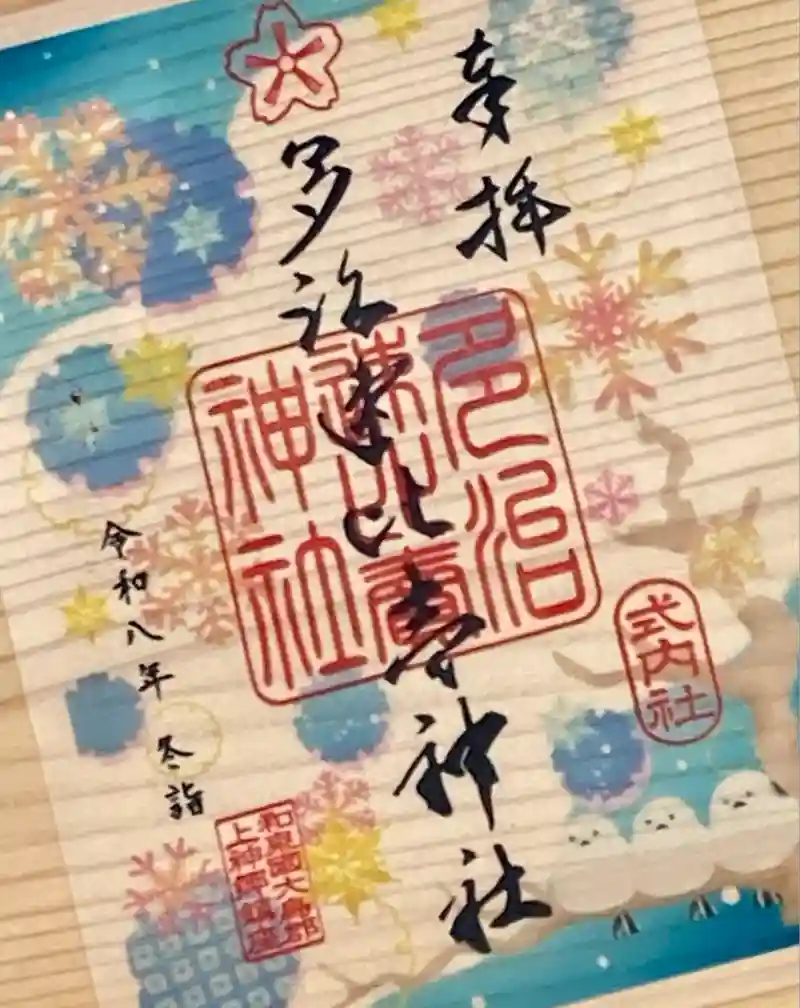 奉拝
多治速比売神社
多治
速比賣
神社
式内社
令和八年 冬詣
和泉國大鳥郡
上神郷鎮座